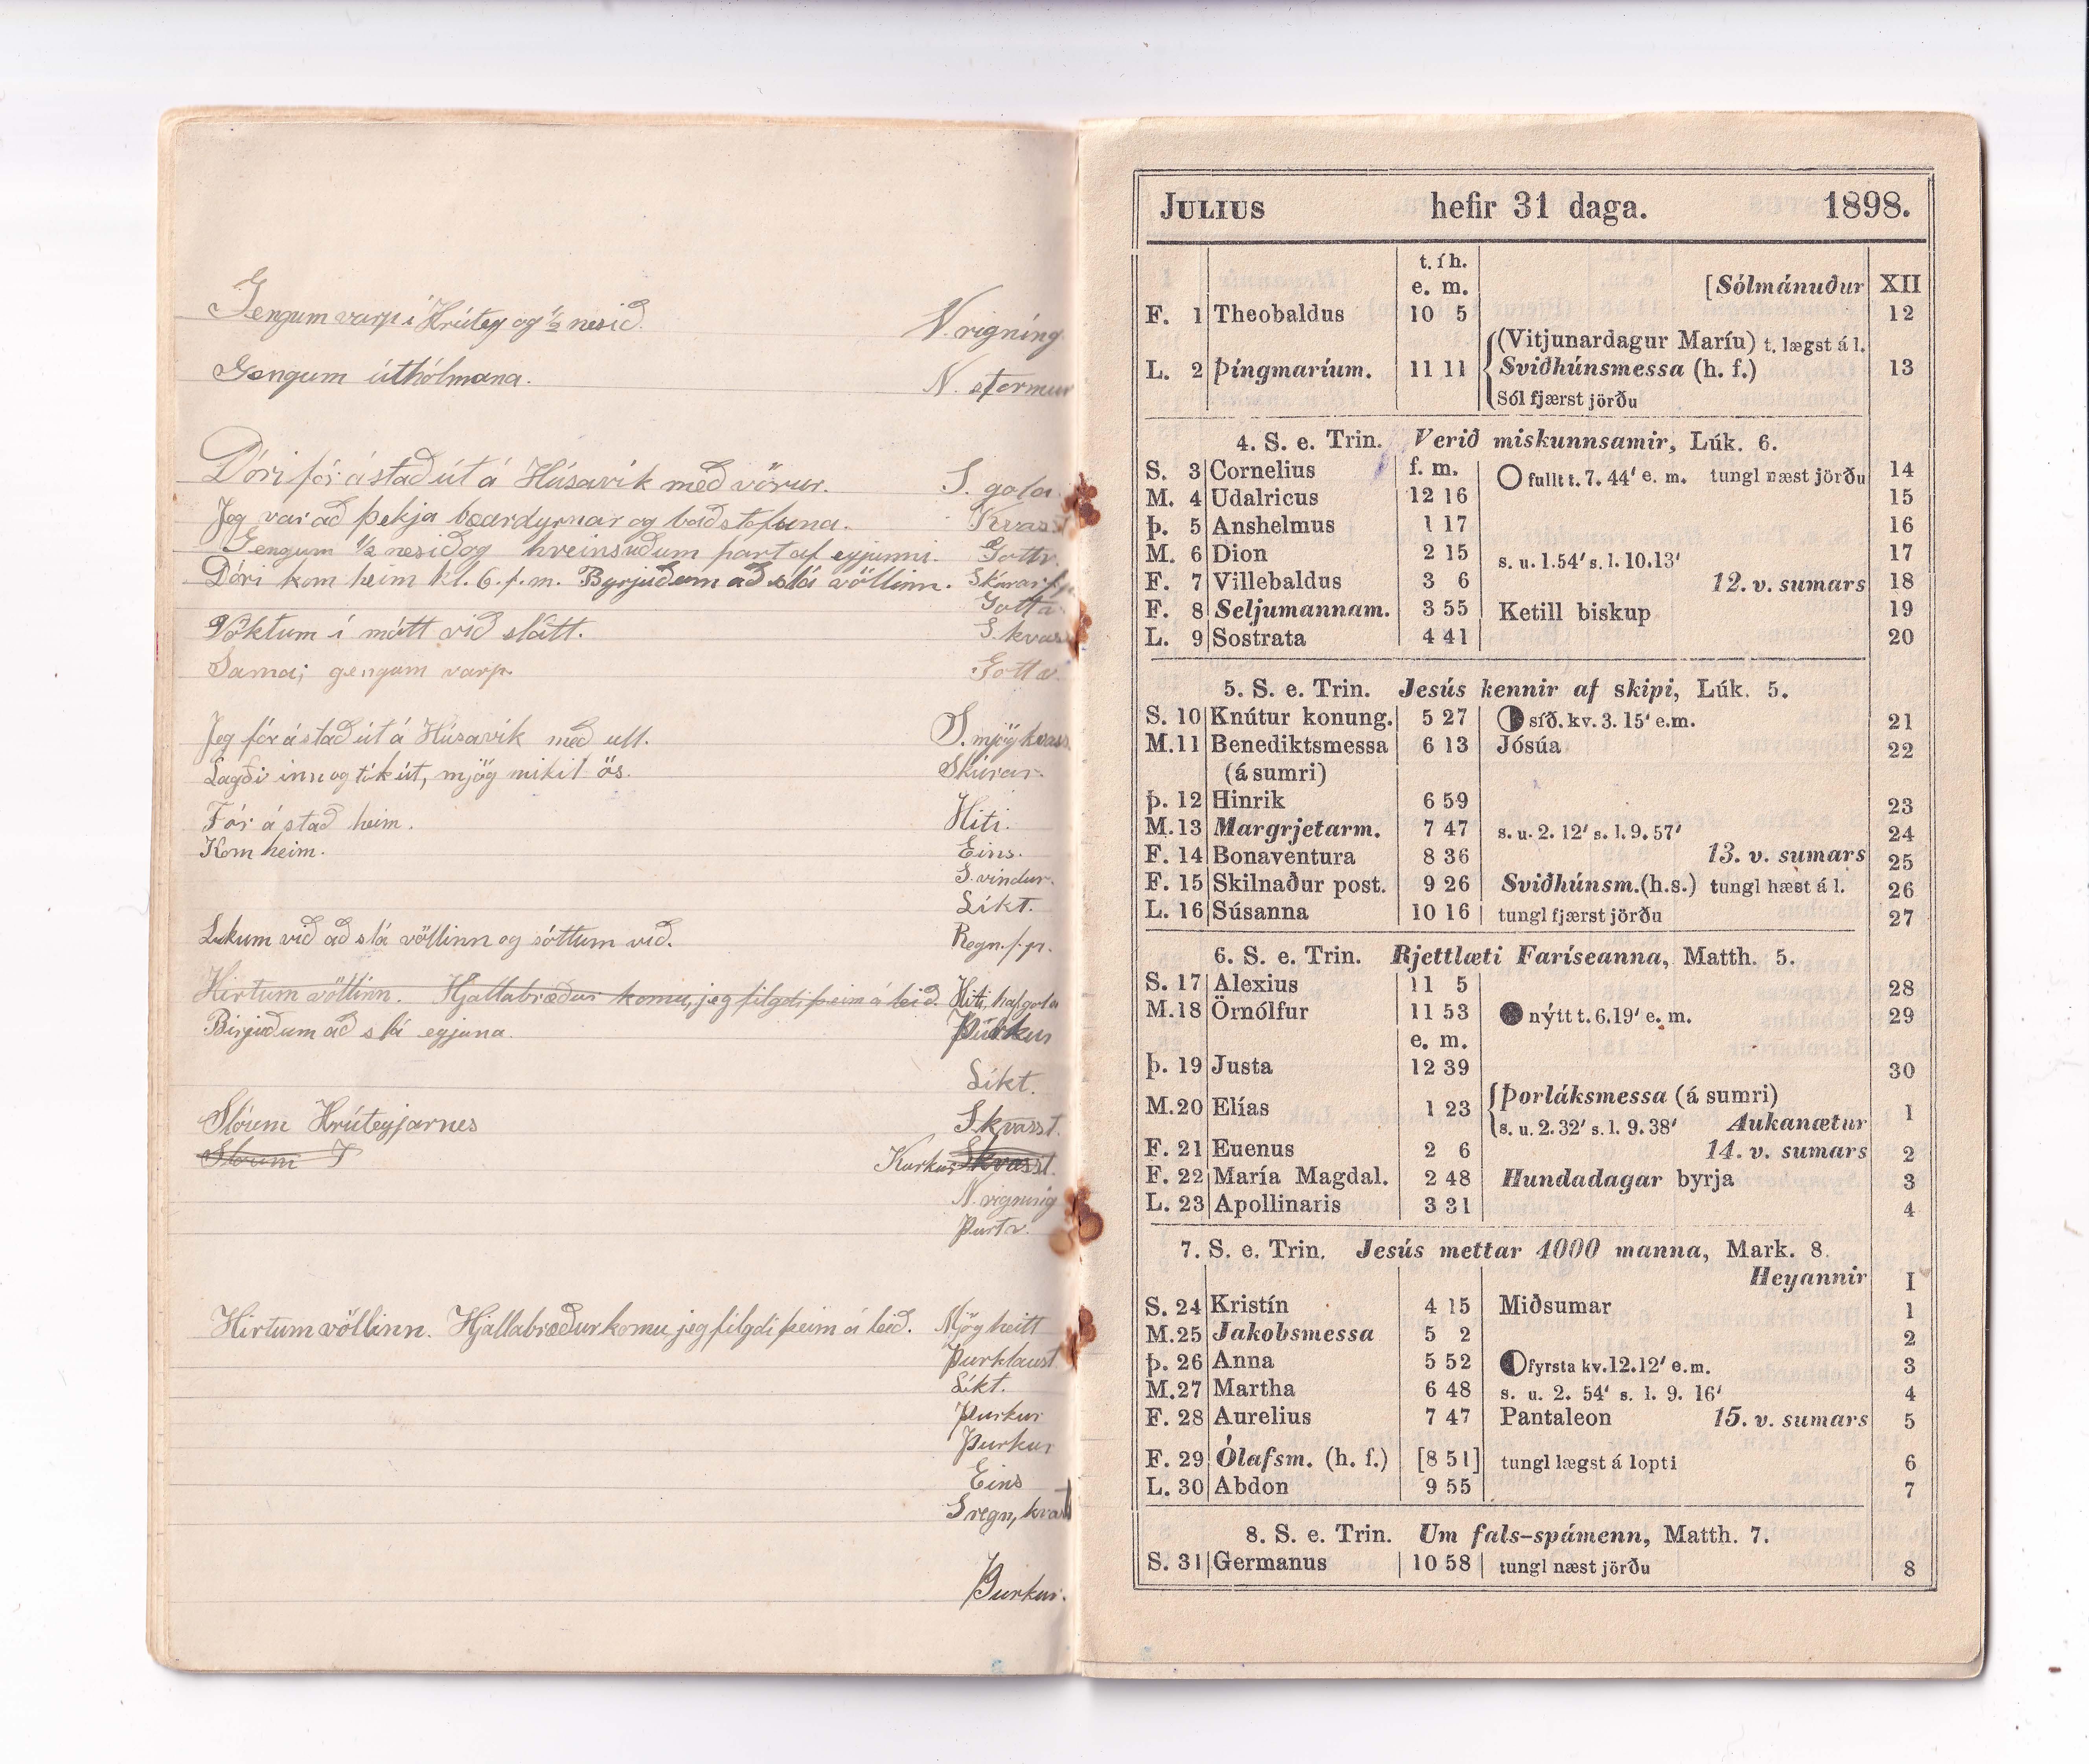 Gengum varp í Hrútey og ½ nesið. N. rigníng
Gengum úthólmana. N. stormur
Dóri fór á stað út á Húsavík með vörur. S. gola
Jeg var að þekja bæardyrnar og baðstofuna. Kvasst
Gengum ½ nesið og hreinsuðum part af eyjunni. Gottv.
Dóri kom heim kl. 6. f. m. Byrjuðum að slá völlinn. Skúrar
Gott v.
Vöktum í nátt við slátt. S. kvass
Sama; gengum varp. Gott v.
Jeg fór á stað út á Húsavík með ull. S. mjög kvass
Lagði inn og tók út, mjög mikil ös. Skúrar.
Fór á stað heim. Hiti.
Kom heim. Eins.
S. vindur.
Líkt.
Lukum við að slá völlinn og sóttum við. Regn. f. p.
Hirtum völlinn. Hjallabræður komu, jeg filgdi þeim á leið. Hiti, hafgola
Birjuðum að slá eyjuna. Þurkur
Líkt.
Slóum Hrúteyjarnes S. kvasst.
Slóum Þurkur S kvasst.
N. rigning
Þurt v.
Hirtum völlinn. Hjallabræður komu, jeg filgdi þeim á leið. Mjög heitt
Þurklaust
Líkt.
Þurkur
Þurkur
Eins
S regn, kvast
Þurkur.
JULIUS hefir 31 daga. 1898.
t. í h.
e. m. [Sólmánuður XII
F. 1 Theobaldus 10 5 12
(Vitjunardagur Maríu) t. lægst á l.
L. 2 Þingmaríum. 11 11 Sviðhúnsmessa (h. f.) 13
Sól fjærst jörðu
4. S. e. Trin. Verið miskunnsamir, Lúk. 6.
S. 3 Cornelius f. m. fullt t. 7. 44′ e. m. tungl næst jörðu 14
M. 4 Udalricus 12 16 15
Þ. 5 Anshelmus 1 17 16
M. 6 Dion 2 15 s. u. 1.54′ s. l. 10.13′ 17
F. 7 Villebaldus 3 6 12. v. sumars 18
F. 8 Seljumannam. 3 55 Ketill biskup 19
L. 9 Sostrata 4 41 20
5. S. e. Trin. Jesús kennir af skipi, Lúk. 5.
S. 10 Knútur konung. 5 27 síð. kv. 3. 15′ e.m. 21
M. 11 Benediktsmessa 6 13 Jósúa 22
(á sumri)
Þ. 12 Hinrik 6 59 23
M. 13 Margrjetarm. 7 47 s. u. 2. 12′ s. l. 9. 57′ 24
F. 14 Bonaventura 8 36 13. v. sumars 25
F. 15 Skilnaður post. 9 26 Sviðhúnsm.(h.s.) tungl hæst á l. 26
L. 16 Súsanna 10 16 tungl fjærst jörðu 27
6. S. e. Trin. Rjettlæti Faríseanna, Matth. 5.
S. 17 Alexius 11 5 28
M. 18 Örnólfur 11 53 nýtt t. 6.19′ e. m. 29
e. m.
Þ. 19 Justa 12 39 30
Þorláksmessa (á sumri)
M. 20 Elías 1 23 1
s. u. 2. 32′ s. l. 9. 38′ Aukanætur
F. 21 Euenus 2 6 14. v. sumars 2
F. 22 María Magdal. 2 48 Hundadagar byrja 3
L. 23 Apollinaris 3 31 4
7. S. e. Trin. Jesús mettar 4000 manna, Mark. 8.
Heyannir I
S. 24 Kristín 4 15 Miðsumar 1
M. 25 Jakobsmessa 5 2 2
Þ. 26 Anna 5 52 fyrsta kv. 12.12′ e.m. 3
M. 27 Martha 6 48 s. u. 2. 54′ s. l. 9. 16′ 4
F. 28 Aurelius 7 47 Pantaleon 15. v. sumars 5
F. 29 Ólafsm. (h. f.) [8 51] tungl lægst á lopti 6
L. 30 Abdon 9 55 7
8. S. e. Trin. Um fals-spámenn, Matth. 7.
S. 31 Germanus 10 58 tungl næst jörðu 8